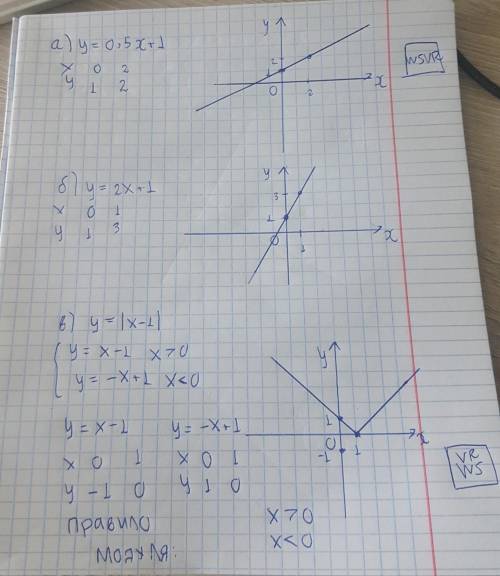 а) y = 0,5x+1
x 0 2
y 1 2
y
2
1
0
2
x
WSVR
б) y = 2x+1
x 0 1
y 1 3
y
3
1
0
1
x
в) y = |x-1|
y = x-1 x>0
y = -x+1 x<0
y
1
0
-1
1
x
y = x-1 y = -x+1
x 0 1 x 0 1
y -1 0 y 1 0
VR
WS
правило x>0
модуля: x<0